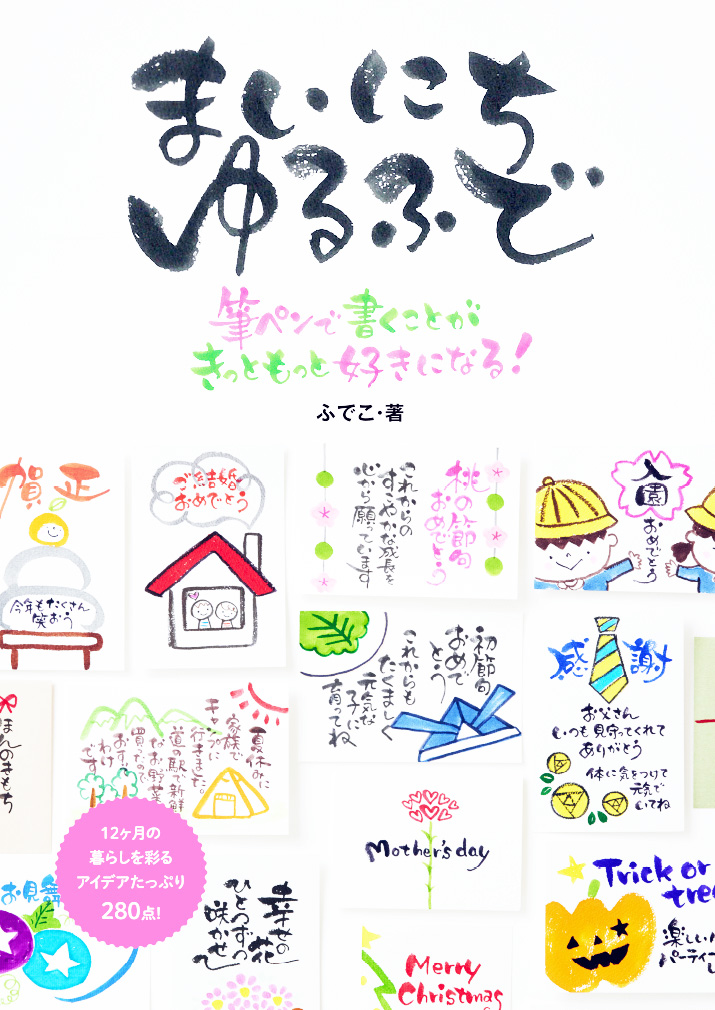 まいにち
ゆるふで
筆ペンで書くことが
きっともっと好きになる!
ふでこ・著
賀正
今年もたくさん
笑おう
ご結婚
おめでとう
桃の節句
おめでとう
これからの
すこやかな成長を
心から願っています
入園
おめでとう
初節句
おめで
とう
これからも
たくましく
元気な
子に
育ってね
感謝
お父さん
いつも見守ってくれて
ありがとう
体に気をつけて
元気で
いてね
ほんのきもち
夏休みに
家族で
キャンプに
行きました。
道の駅で新鮮
なお野菜
買ったので
おす
わけ
です
12ヶ月の
暮らしを彩る
アイデアたっぷり
280点!
Mother's day
お見舞
幸せの
花
ひとつずつ
咲かせ
Merry
Christmas
Trick or
tre
楽しい
パーティー